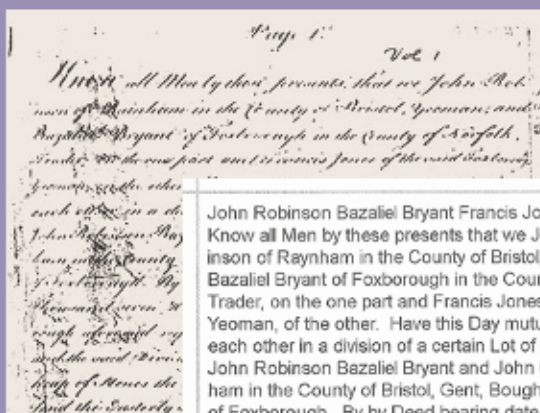 Page 1.
Vol 1
Know all Men by these presents, that we John Rob
inson of Rainham in the County of Bristol, Yeoman; and
Bazaliel Bryant of Foxborough in the County of Norfolk,
Trader, on the one part and Francis Jones of the said Foxborou
Yeoman, of the other
each other in a di
John Robinson Baz
ham in the County
of Foxborough. By
thousand seven H
rough aforesaid
and the said Divisi
heap of Stones the
said the Easterly
John Robinson Bazaliel Bryant Francis Jo
Know all Men by these presents that we J
inson of Raynham in the County of Bristol
Bazaliel Bryant of Foxborough in the Cou
Trader, on the one part and Francis Jones
Yeoman, of the other. Have this Day mutu
each other in a division of a certain Lot of
John Robinson Bazaliel Bryant and John
ham in the County of Bristol, Gent, Bough
of Foxborough. By by Deed bearing date